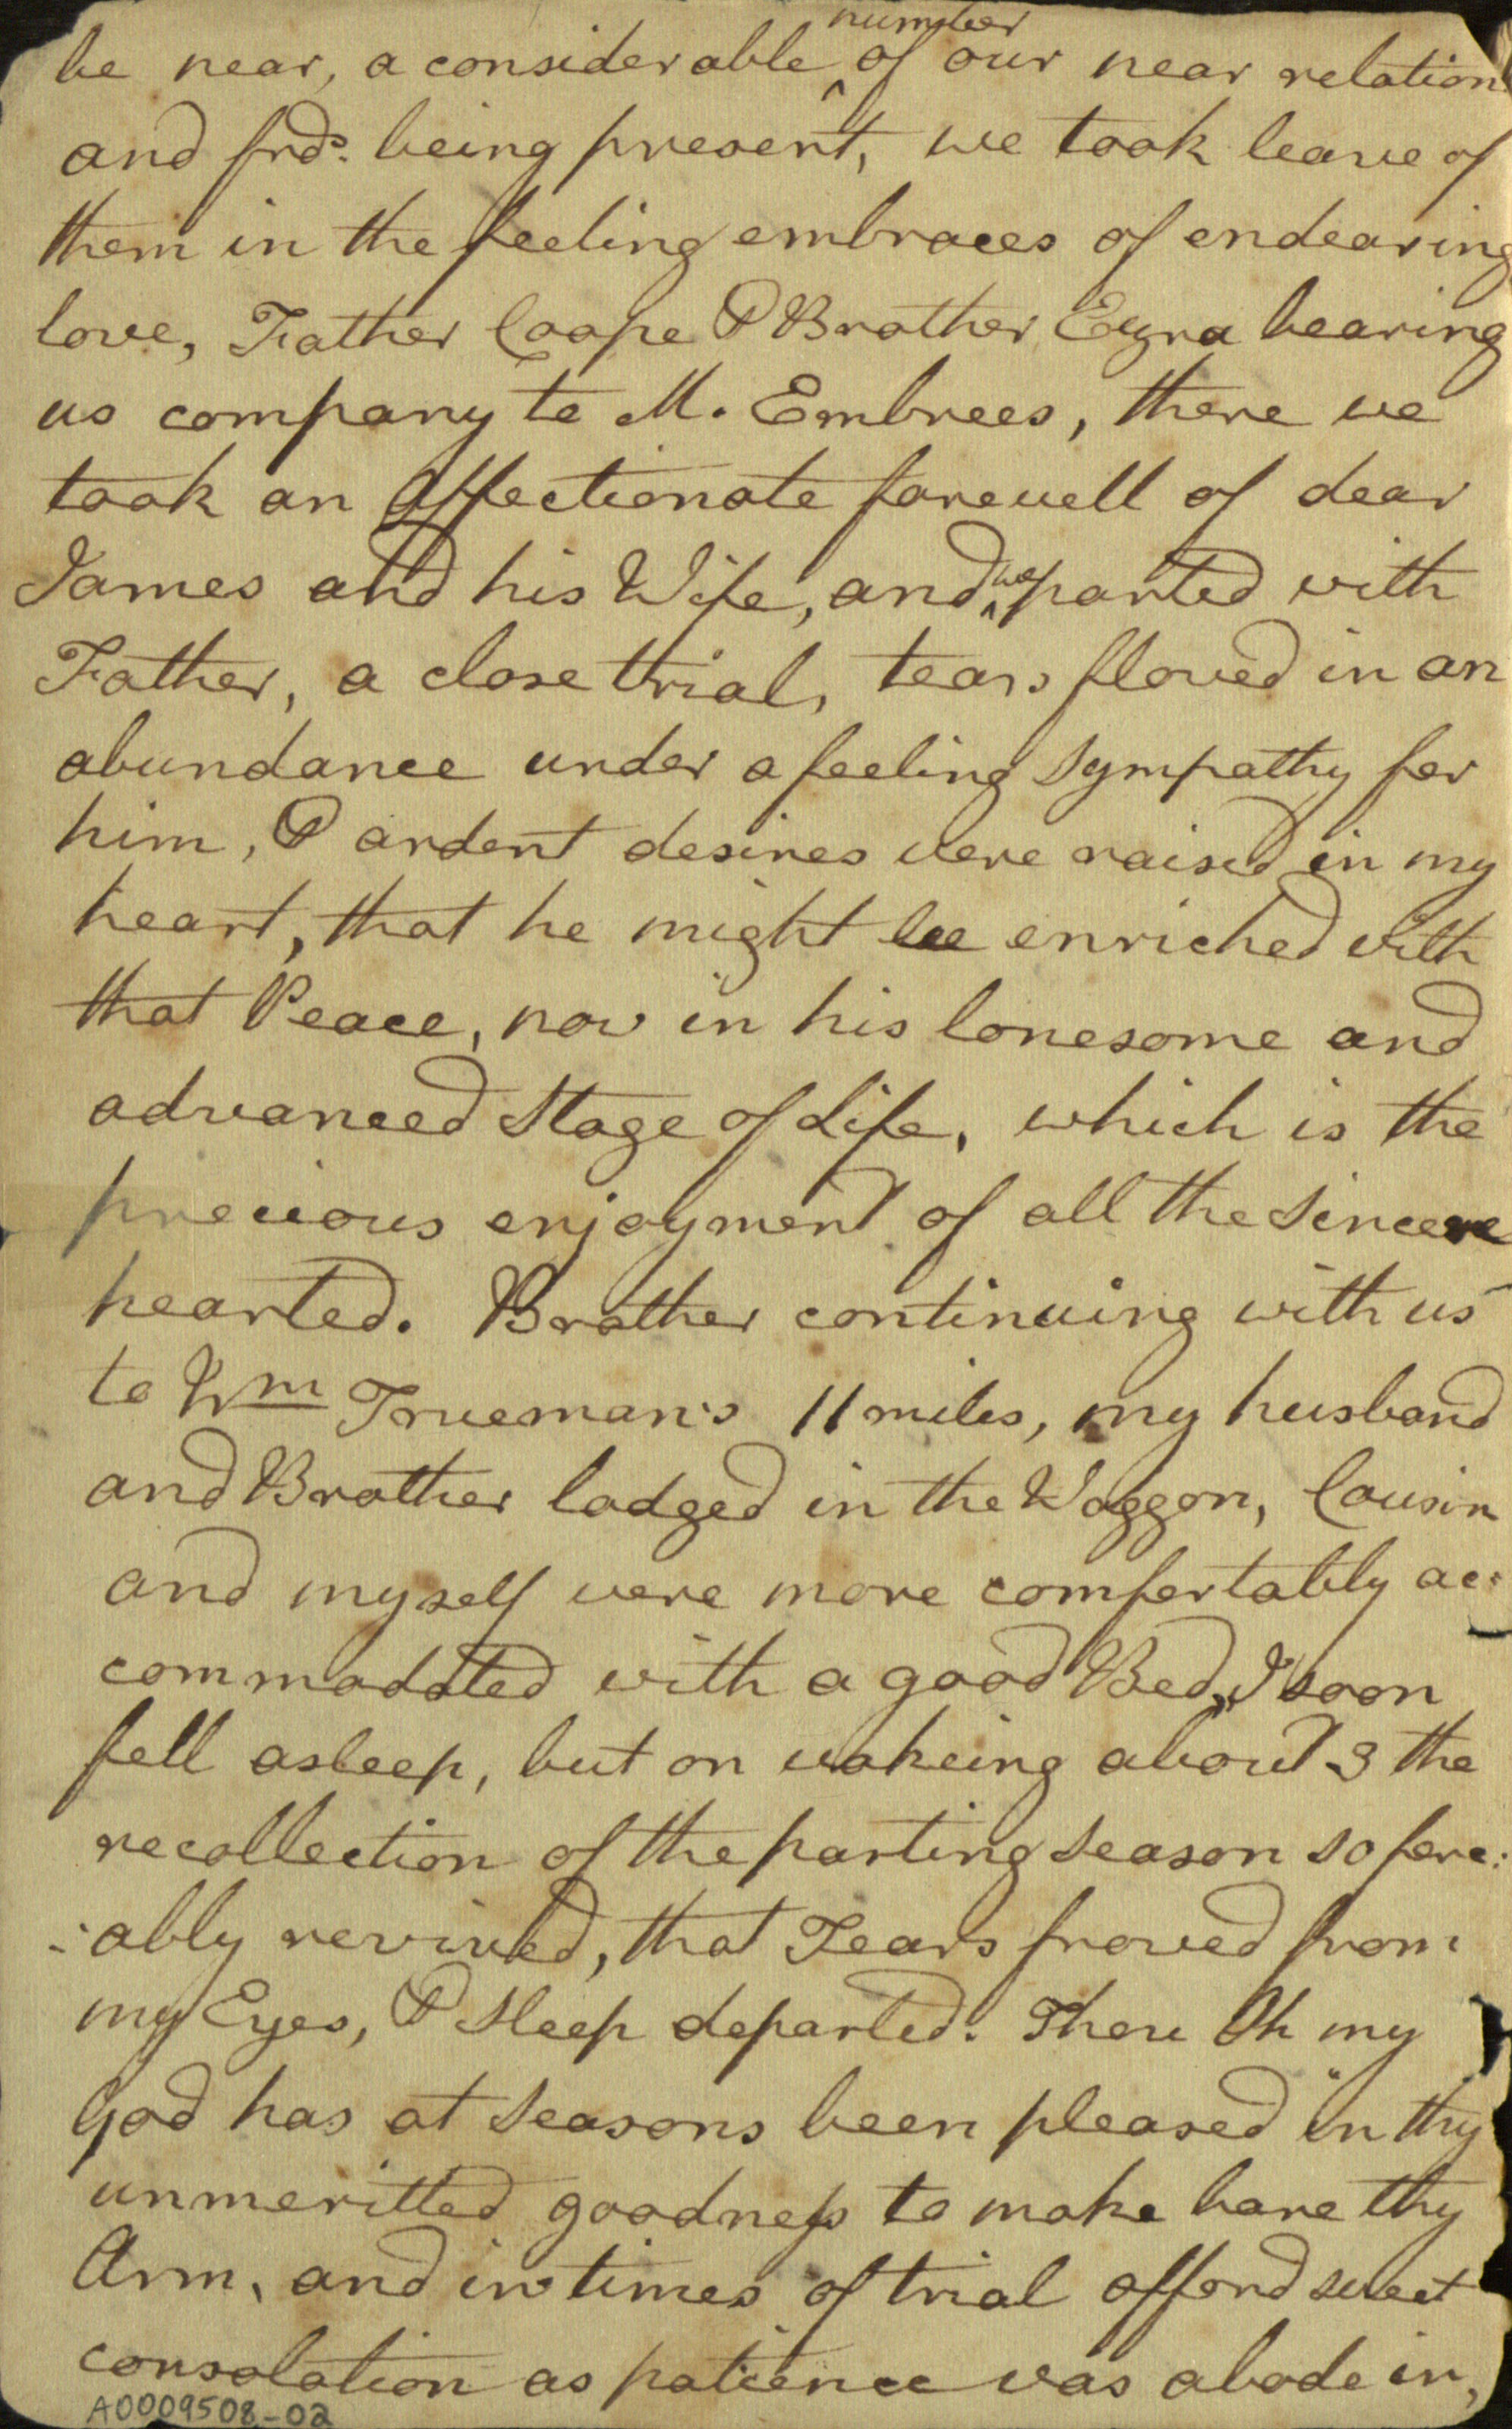 be near, a considerable ^number of our near relation
and frds. being present, we took leave of
them in the feeling embraces of endearing
love, Father Coope & Brother Ezra bearing
us company to M. Embrees, there we
took an affectionate farewell of dear
James and his Wife, and ^we parted with
Father, a close trial, tears flowed in an
abundance under a feeling Sympathy for
him, & ardent desires were raised in my
heart, that he might be enriched with
that Peace, now in his lonesome and
advanced Stage of Life, which is the
precious enjoyment of all the Sincere
hearted. Brother continuing with us
to Wm Trueman's 11 miles, my husband
and Brother lodged in the Waggon, Cousin
and myself were more comfortably ac:
commodated with a good Bed, I soon
fell asleep, but on wakeing about 3 the
recollection of the parting Season so forc:
:ably revived, that Tears frowed from
my Eyes, & Sleep departed. Thou Oh my
God has at Seasons been pleased in thy
unmeritted goodness to make bare thy
Arm, and in times of trial afford sweet
consolation as patience was abode in,
A0009508-02